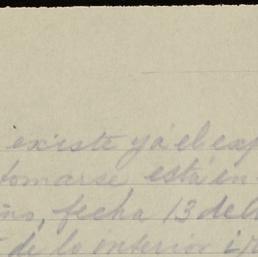 existe ya el exp
tomarse está en
fecha 13 de
de lo interior